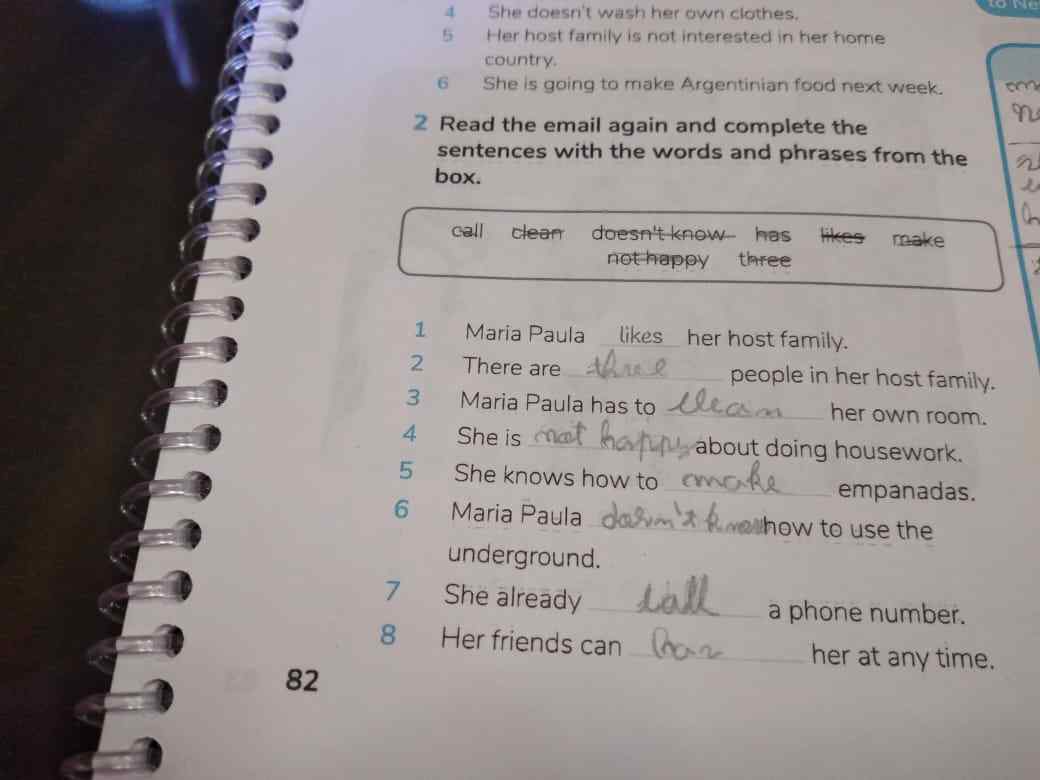 to Ne
4 She doesn't wash her own clothes.
5 Her host family is not interested in her home
country.
6 She is going to make Argentinian food next week.
2 Read the email again and complete the
sentences with the words and phrases from the
box.
call clean doesn't know has likes make
not happy three
1 Maria Paula likes her host family.
2 There are three people in her host family.
3 Maria Paula has to clean her own room.
4 She is not happy about doing housework.
5 She knows how to make empanadas.
6 Maria Paula doesn't know how to use the
underground.
7 She already call a phone number.
8 Her friends can has her at any time.
82